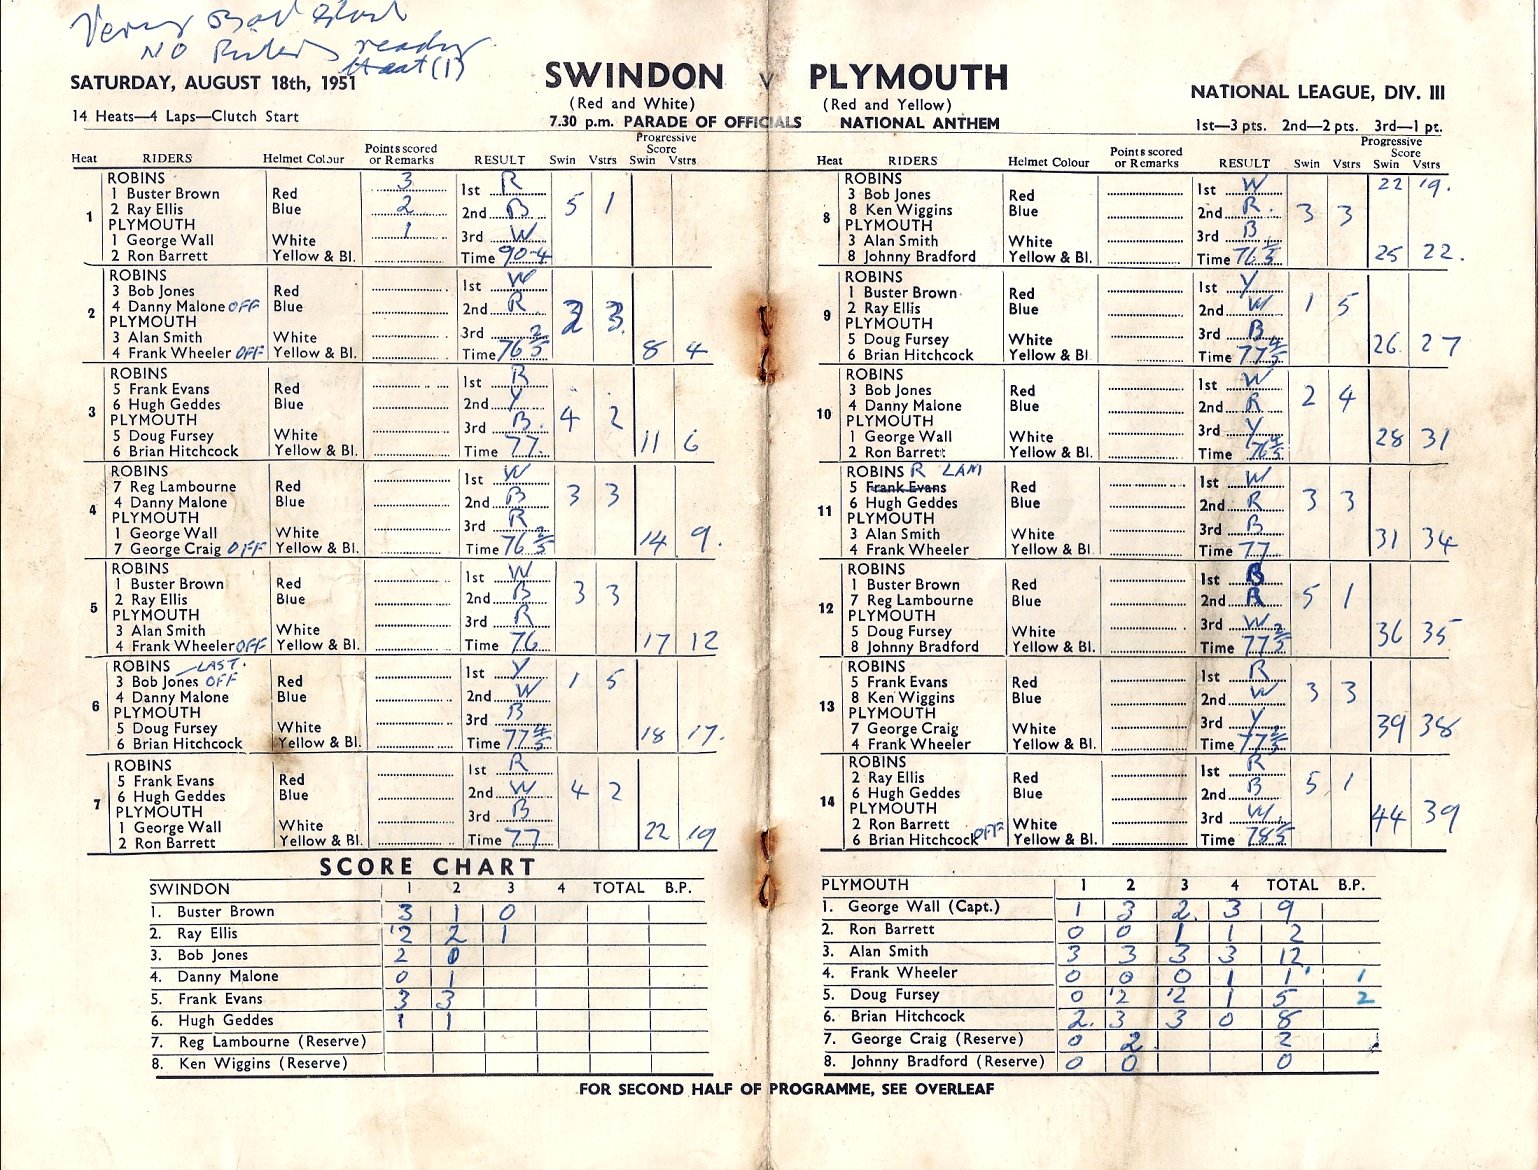 Very Bad Start
NO Riders ready
Heat (1)
SATURDAY, AUGUST 18th, 1951
SWINDON v PLYMOUTH
(Red and White) (Red and Yellow)
NATIONAL LEAGUE, DIV. III
14 Heats—4 Laps—Clutch Start
7.30 p.m. PARADE OF OFFICIALS NATIONAL ANTHEM
1st—3 pts. 2nd—2 pts. 3rd—1 pt.
Heat RIDERS Helmet Colour Points scored or Remarks RESULT Swin Vstrs Progressive Score Swin Vstrs
ROBINS 3 1st R
1 Buster Brown Red
1 2 Ray Ellis Blue 2 2nd B 5 1
PLYMOUTH
1 George Wall White 1 3rd W
2 Ron Barrett Yellow & Bl. Time 90-4
ROBINS 1st W
3 Bob Jones Red
2 4 Danny Malone OFF Blue 2nd R 3 3
PLYMOUTH
3 Alan Smith White 3rd
4 Frank Wheeler OFF Yellow & Bl. Time 76 2/5 8 4
ROBINS 1st B
5 Frank Evans Red
3 6 Hugh Geddes Blue 2nd Y 4 2
PLYMOUTH
5 Doug Fursey White 3rd B
6 Brian Hitchcock Yellow & Bl. Time 77 11 6
ROBINS 1st W
7 Reg Lambourne Red
4 4 Danny Malone Blue 2nd B 3 3
PLYMOUTH
1 George Wall White 3rd R
7 George Craig OFF Yellow & Bl. Time 76 2/5 14 9.
ROBINS 1st W
1 Buster Brown Red
5 2 Ray Ellis Blue 2nd B 3 3
PLYMOUTH
3 Alan Smith White 3rd R
4 Frank Wheeler OFF Yellow & Bl. Time 76 17 12
ROBINS LAST. 1st Y
3 Bob Jones OFF Red
6 4 Danny Malone Blue 2nd W 1 5
PLYMOUTH
5 Doug Fursey White 3rd B
6 Brian Hitchcock Yellow & Bl. Time 77 4/5 18 17.
ROBINS 1st R
5 Frank Evans Red
7 6 Hugh Geddes Blue 2nd W 4 2
PLYMOUTH
1 George Wall White 3rd B
2 Ron Barrett Yellow & Bl. Time 77 22 19
Heat RIDERS Helmet Colour Points scored or Remarks RESULT Swin Vstrs Progressive Score Swin Vstrs
ROBINS 1st W 22 19.
3 Bob Jones Red
8 8 Ken Wiggins Blue 2nd R 3 3
PLYMOUTH
3 Alan Smith White 3rd B
8 Johnny Bradford Yellow & Bl. Time 76 1/5 25 22.
ROBINS 1st Y
1 Buster Brown Red
9 2 Ray Ellis Blue 2nd W 1 5
PLYMOUTH
5 Doug Fursey White 3rd B
6 Brian Hitchcock Yellow & Bl. Time 77 4/5 26 27
ROBINS 1st W
3 Bob Jones Red
10 4 Danny Malone Blue 2nd R 2 4
PLYMOUTH
1 George Wall White 3rd Y
2 Ron Barrett Yellow & Bl. Time 76 4/5 28 31
ROBINS R LAM 1st W
5 Frank Evans Red
11 6 Hugh Geddes Blue 2nd R 3 3
PLYMOUTH
3 Alan Smith White 3rd B
4 Frank Wheeler Yellow & Bl Time 77 31 34
ROBINS 1st B
1 Buster Brown Red
12 7 Reg Lambourne Blue 2nd R 5 1
PLYMOUTH
5 Doug Fursey White 3rd W
8 Johnny Bradford Yellow & Bl. Time 77 2/5 36 35
ROBINS 1st R
5 Frank Evans Red
13 8 Ken Wiggins Blue 2nd W 3 3
PLYMOUTH
7 George Craig White 3rd Y
4 Frank Wheeler Yellow & Bl. Time 77 2/5 39 38
ROBINS 1st R
2 Ray Ellis Red
14 6 Hugh Geddes Blue 2nd B 5 1
PLYMOUTH
2 Ron Barrett White 3rd W
6 Brian Hitchcock OFF Yellow & Bl. Time 78 1/5 44 39
SCORE CHART
SWINDON 1 2 3 4 TOTAL B.P.
1. Buster Brown 3 1 0
2. Ray Ellis '2 2 1
3. Bob Jones 2 0
4. Danny Malone 0 1
5. Frank Evans 3 3
6. Hugh Geddes 1 1
7. Reg Lambourne (Reserve)
8. Ken Wiggins (Reserve)
PLYMOUTH 1 2 3 4 TOTAL B.P.
1. George Wall (Capt.) 1 3 2 3 9
2. Ron Barrett 0 0 1 1 2
3. Alan Smith 3 3 3 3 12
4. Frank Wheeler 0 0 0 1 1' 1
5. Doug Fursey 0 '2 '2 1 5 2
6. Brian Hitchcock 2. 3 3 0 8
7. George Craig (Reserve) 0 2 2
8. Johnny Bradford (Reserve) 0 0 0
FOR SECOND HALF OF PROGRAMME, SEE OVERLEAF